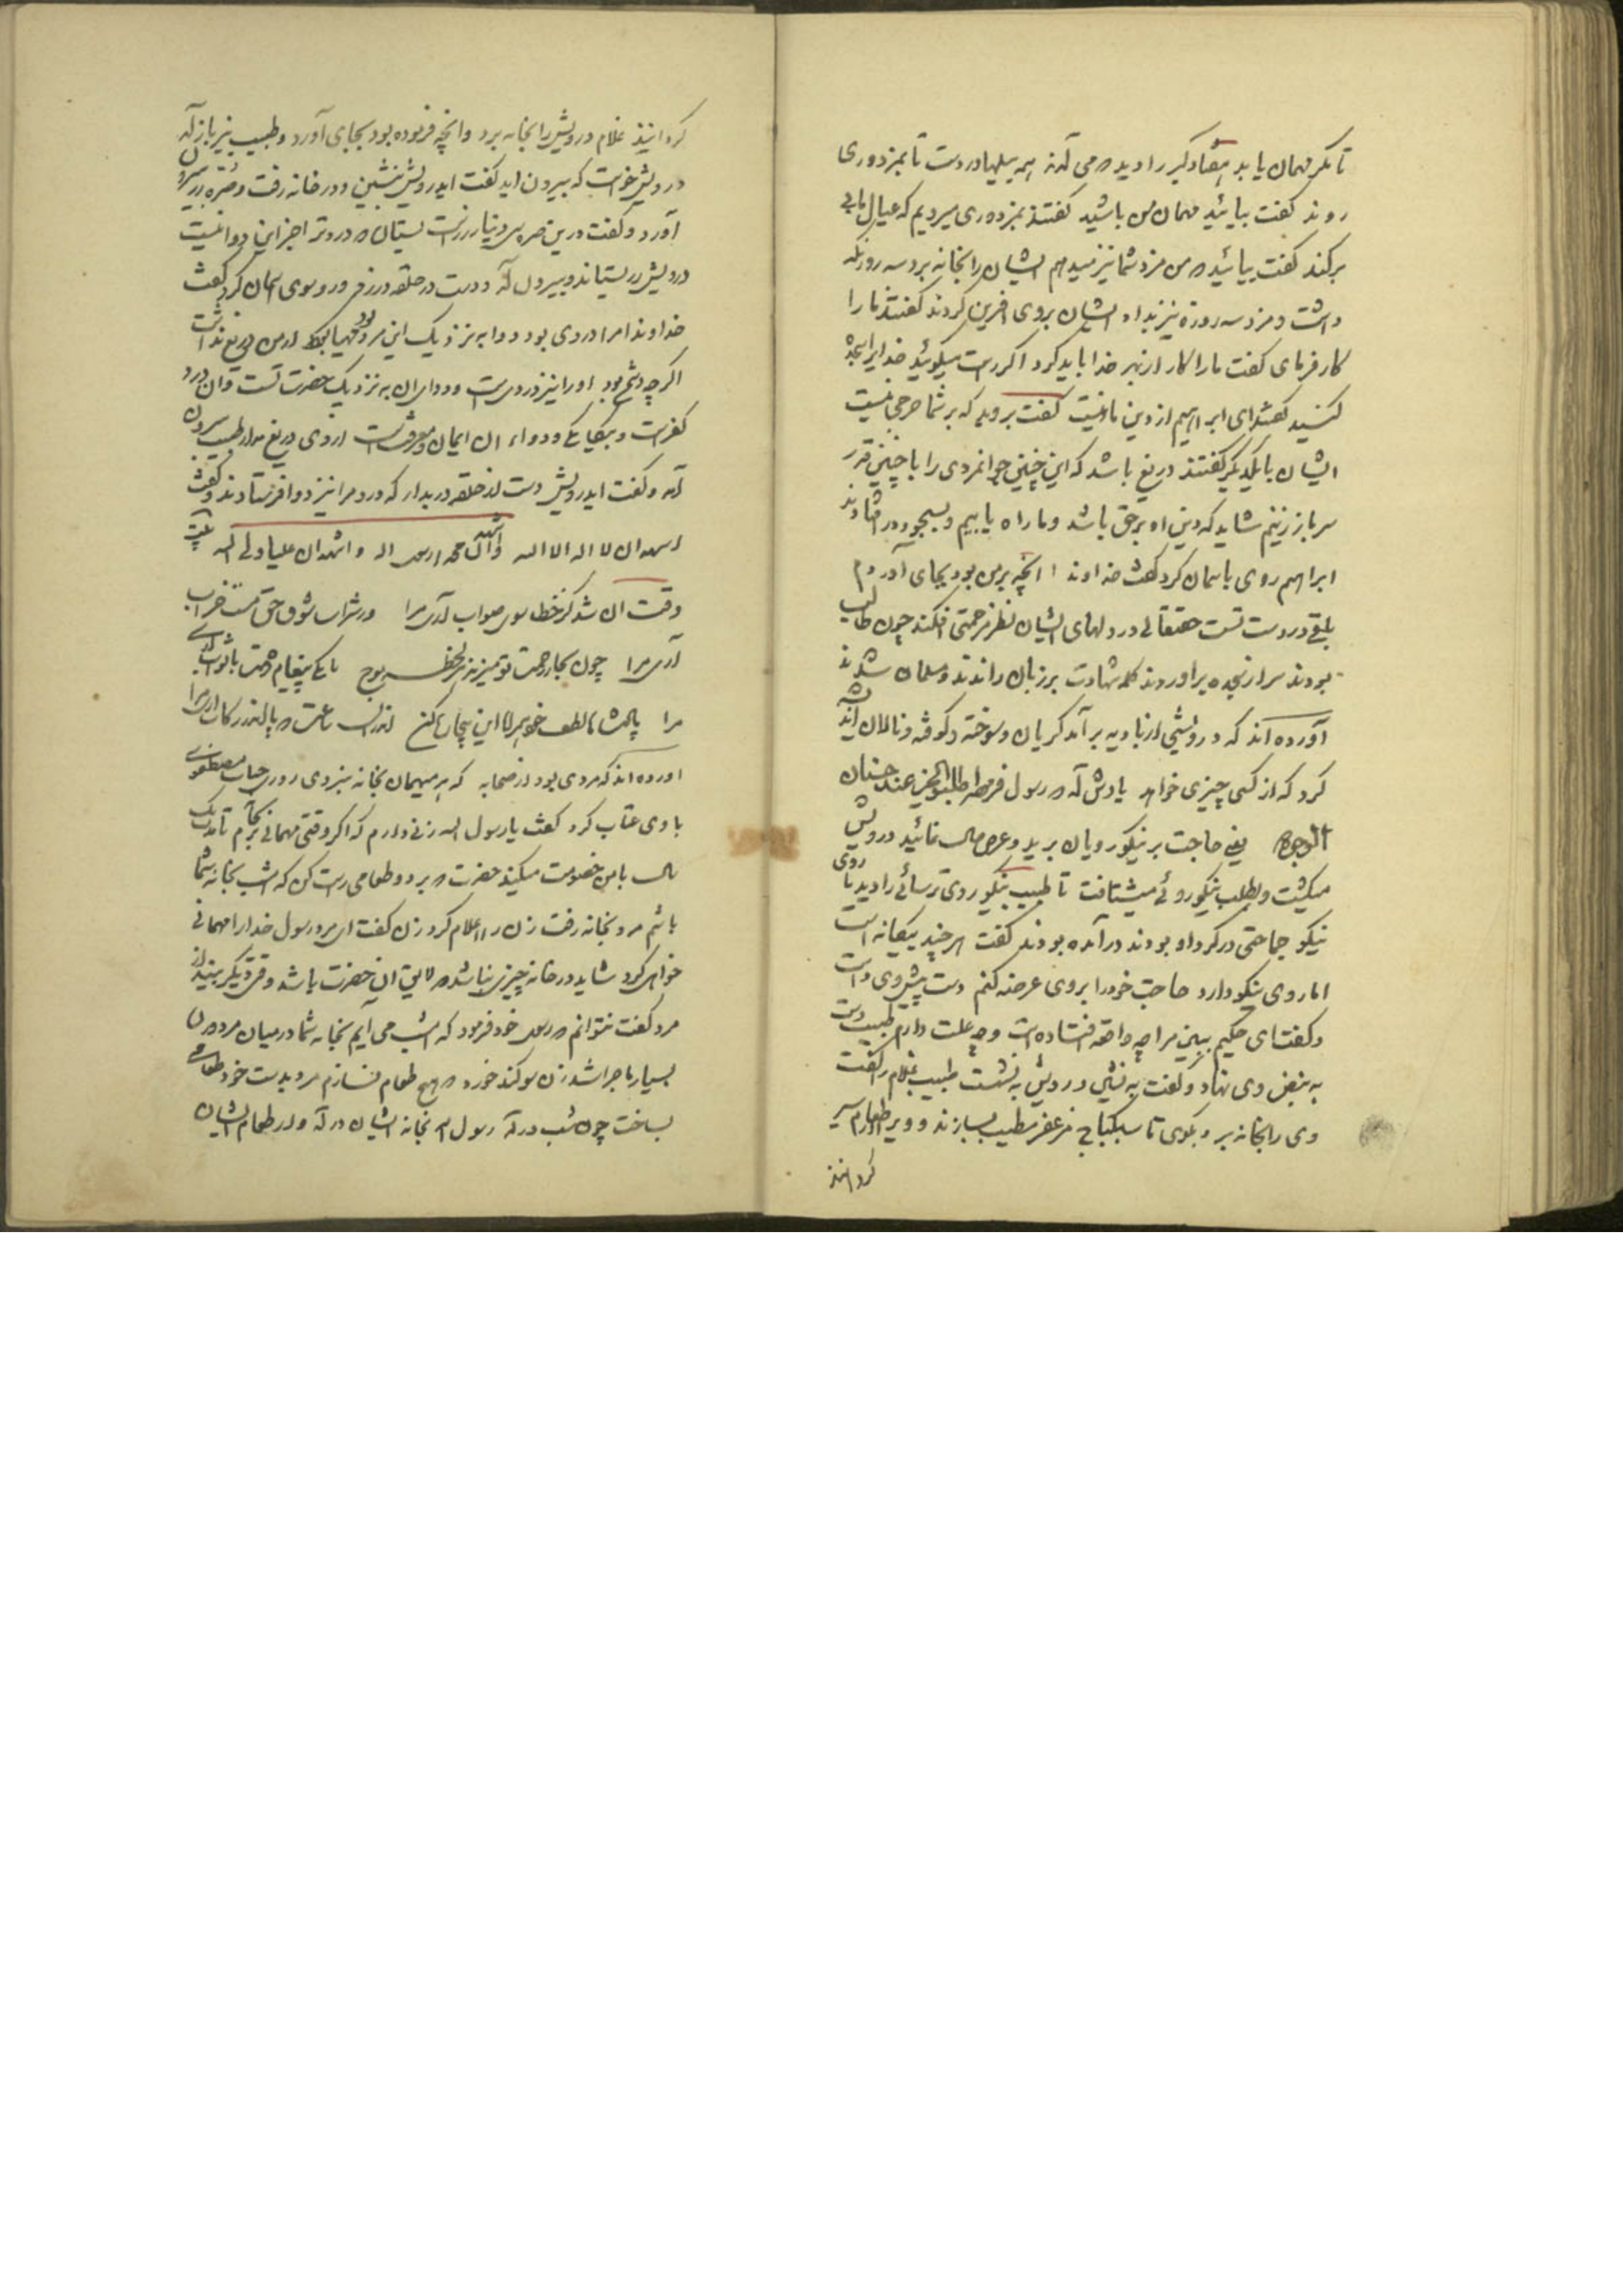 تا مکر مهمان یابد هفتاد کبر را دید که می آمدند همه بیلها در دست تا بمزدوری
روند کفت بیائید مهمان من باشید کفتند بمزدوری میرویم که عیال ما بی
برکند کفت بیائید که من مزد شما نیز میدهم ایشان را بخانه برد سه روز نکه
داشت و مزد سه روزه نیز بداد ایشان بروی افرین کردند کفتند ما را
کار فرمای کفت ما را کار از بهر خدا باید کرد اکر راست میکوئید خدایرا سجده
کنید کفتند ای ابراهیم از دین ما نیست کفت بروید که بر شما حرجی نیست
ایشان با یکدیکر کفتند دریغ باشد که این چنین جوانمردی را با چنین قدر
سر باز زنیم شاید که دین او بر حق باشد و ما راه یابیم و بسجود در افتادند
ابراهیم روی باسمان کرد کفت خداوندا انچه بر من بود بجای آوردم
باقی در دست تست حقتعالی در دلهای ایشان نظر رحمتی افکند چون طالب
بودند سر از سجده براوردند کلمه شهادت بر زبان راندند و مسلمان شدند
آورده اند که درویشی از بادیه بر آمد کریان و سوخته و کوفته و نالان اندیشه
کرد که از کسی چیزی خواهد یادش آمد که رسول فرمود اطلبوا الخیر عند حسان
الوجوه یعنی حاجت بر نیکو رویان برید و عرض حال نمائید درویش
میکشت و بطلب نیکو روئی میشتافت تا طبیب نیکو روی ترسائی را دید با روی
نیکو جماعتی در کرد او بودند در آمده بودند کفت هر چند بیکانه است
اما روی نیکو دارد حاجت خود را بروی عرضه کنم دست پیش وی داشت
و کفت ای حکیم ببین مرا چه واقعه افتاده است و چه علت دارم طبیب دست
به نبض وی نهاد و کفت به نشین درویش به نشست طبیب غلام را کفت
وی را بخانه بر و بکوی تا سکباجی مزعفر مطیب بسازند و ویرا طعام سیر
کردانند
کردانیند غلام درویش را بخانه برد و انچه فرموده بود بجای آورد و طبیب نیز باز آمد
درویش خواست که بیرون اید کفت ایدرویش بنشین و در خانه رفت و صره زر بیرون
آورد و کفت درین صره سی دینار زر است بستان که درد ترا جز این دوا نیست
درویش زر بستاند و بیرون آمد و دست در حلقه در زد و روی سوی اسمان کرد کفت
خداوندا مرا دردی بود و دوا به نزدیک این مرد مهیا بود از من دریغ نداشت
اکر چه دشمن بود او را نیز دردی است و دوای ان به نزدیک حضرت تست و ان درد
کفر است و بیکانکی و دواء ان ایمان و معرفت است از وی دریغ مدار طبیب بیرون
آمد و کفت ایدرویش دست از حلقه در بدار که درد مرا نیز دوا فرستادند و کفت
اشهد ان لا اله الا الله و اشهد ان محمدا رسول الله و اشهد ان علیا ولی الله بیت
وقت ان شد کز خطا سوی صواب آری مرا در شراب شوق حق مست خراب
آری مرا چون بحار رحمت تو میزند هر لحظه موج با یکی پیغام رحمت با ثواب آری
مرا
اورده اند که مردی بود از صحابه که هر میهمان بخانه نبردی روزی جناب مصطفوی
با وی عتاب کرد کفت یا رسول الله زنی دارم که اکر وقتی مهمانی بخانه برم تا یک
سال با من خصومت میکند حضرت که برو و طعامی راست کن که امشب بخانه شما
باشم مرد بخانه رفت زن را اعلام کرد زن کفت ای مرد رسول خدا را مهمانی
خواهی کرد شاید در خانه چیزی نباشد که لایق ان حضرت باشد وقتی دیکر بینداز
مرد کفت نتوانم که رسول خود فرمود که امشب می آیم بخانه شما در میان مرد و زن
بسیار ماجرا شد زن سوکند خورد که هیچ طعام نسازم مرد بدست خود طعامی
بساخت چون شب در آمد رسول الله بخانه ایشان در آمد و از طعام ایشان